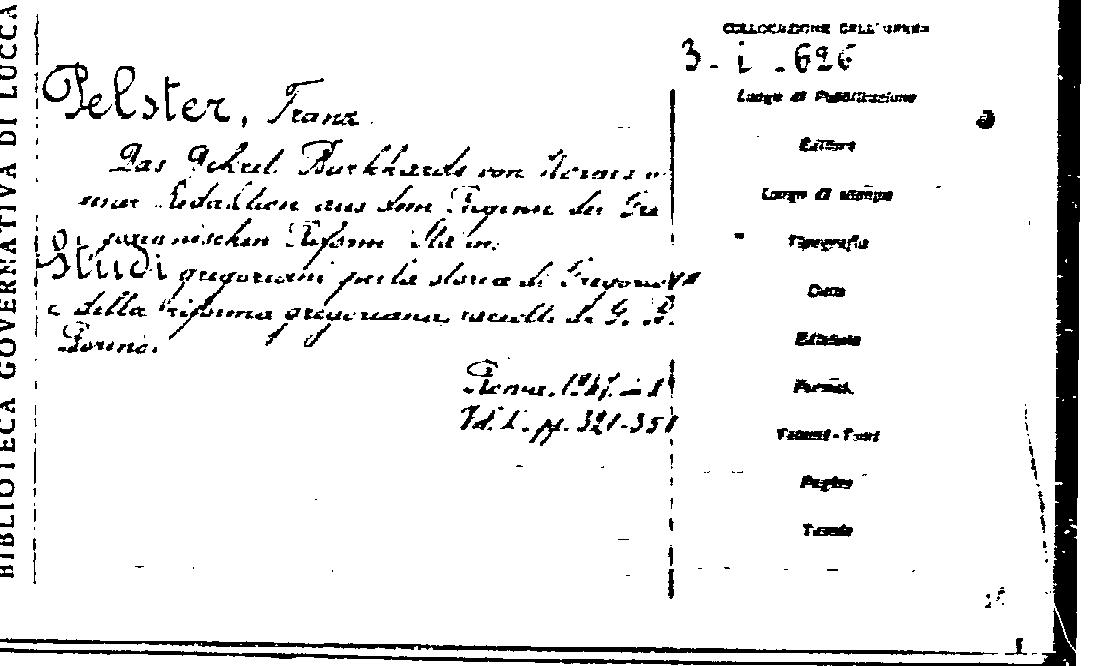 BIBLIOTECA GOVERNATIVA DI LUCCA
COLLOCAZIONE DELL'OPERA
3 - i - 626
Pelster, Franz
Das Dekret Burkhards von Worms
einer Redaktion aus dem Beginn der Gre
gorianischen Reform
Studi gregoriani per la storia di Gregorio VII
e della riforma gregoriana, raccolti da G. B.
Borino.
Roma, 1947.
Vol. I. pp. 321-351
Luogo di Pubblicazione
Editore
Luogo di stampa
Tipografia
Data
Edizione
Formato
Volumi - Tomi
Pagine
Tavole